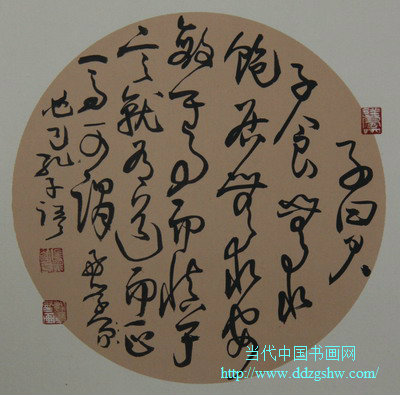 子曰君
子食無求
飽居無求安
敏于事而慎于
言就有道而正
焉可謂好學
也已孔子語
当代中国书画网
http://www.ddzgshw.com/